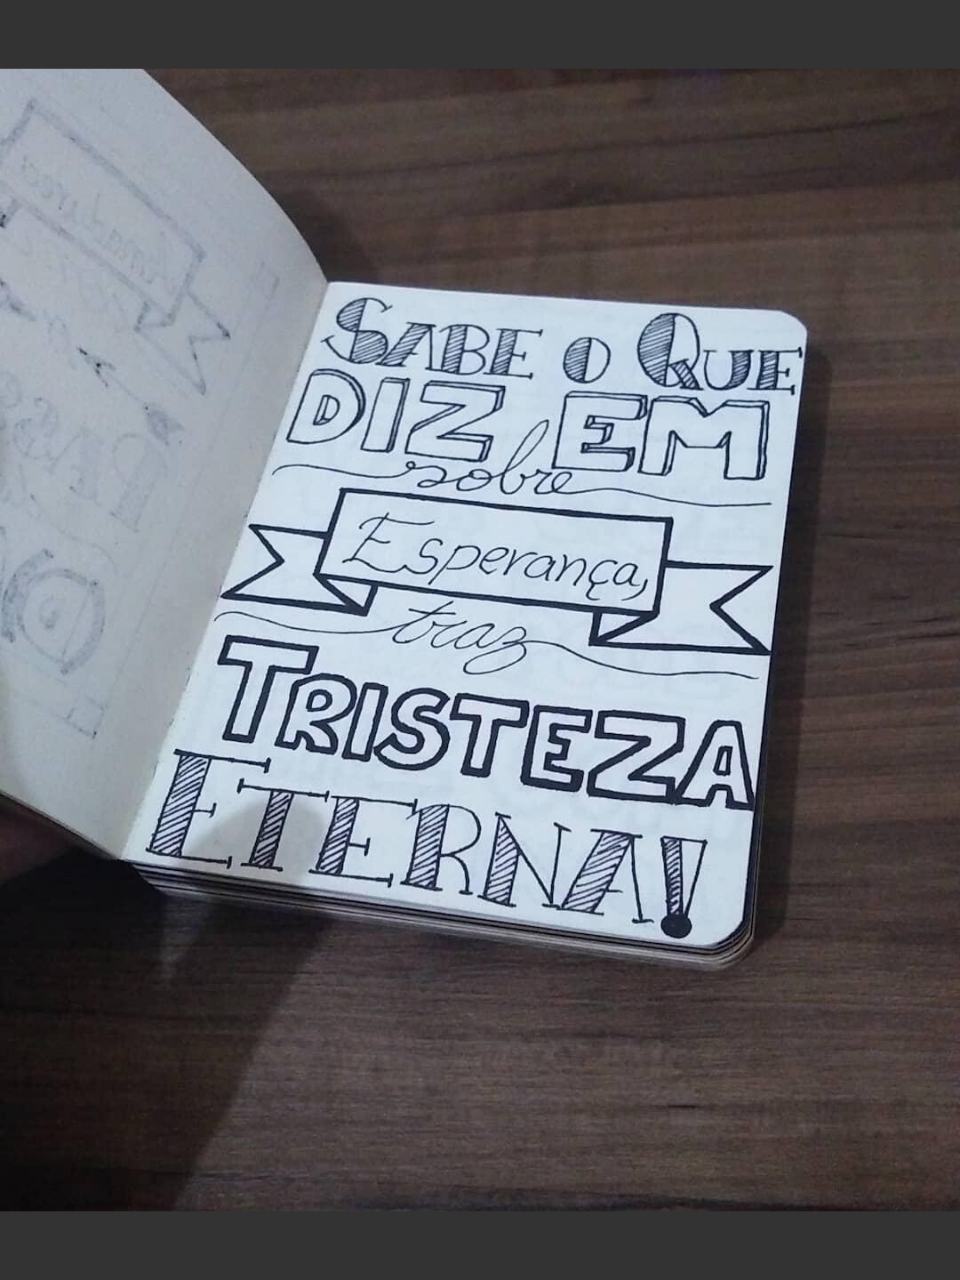 SABE O QUE
DIZEM
sobre
Esperança,
traz
TRISTEZA
ETERNA!